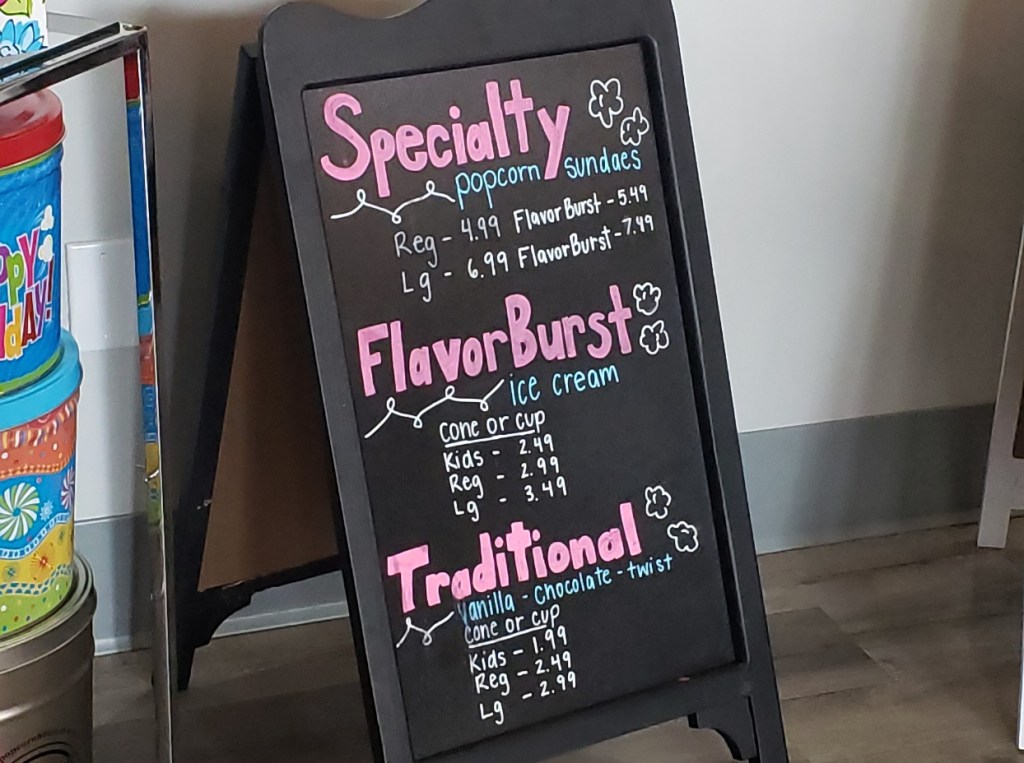 Specialty
popcorn sundaes
Reg - 4.99 Flavor Burst - 5.49
Lg - 6.99 FlavorBurst - 7.49
FlavorBurst
ice cream
cone or cup
Kids - 2.49
Reg - 2.99
Lg - 3.49
Traditional
Vanilla - chocolate - twist
cone or cup
Kids - 1.99
Reg - 2.49
Lg - 2.99